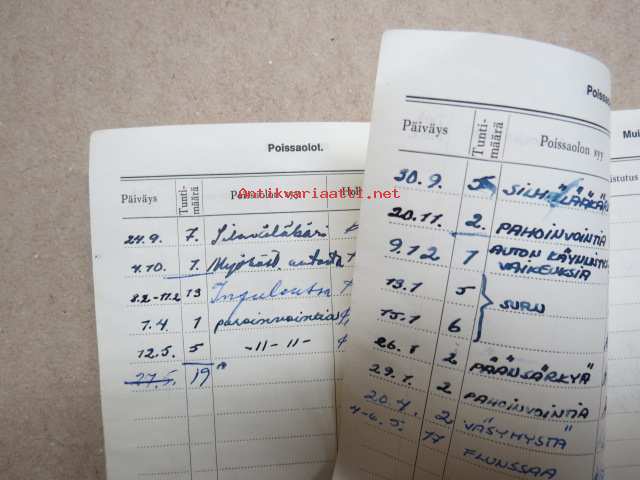 Poissaolot.
Päiväys Tunti-määrä Poissaolon syy
24.9. 7.
4.10. 1. Myöhäst.
8.2-11.2 13
7.4 1 pahoinvointia
12.5. 5 -11-11-
27.5. 19
Antikvariaatti.net
Poissao
Päiväys Tunti-määrä Poissaolon syy
30.9. 5
20.11. 2. PAHOINVOINTIA
9.12 1 AUTON
VAIKEUKSIA
13.1 5
SURU
15.1 6
26.1 2 PÄÄNSÄRKYÄ
29.1. 2 PAHOINVOINTIA
20.4. 2 VÄSYMYSTÄ
4-6.5. 17 FLUNSSAA
Mui